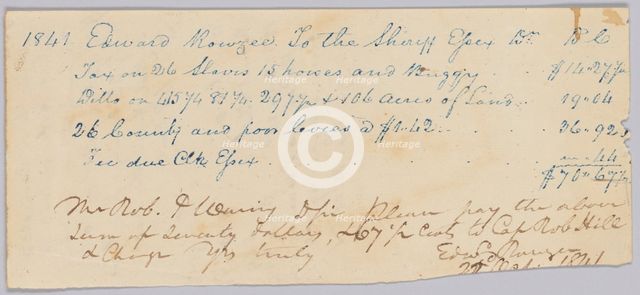 1841 Edward Rowzee To the Sheriff Essex Dr. D C
Tax on 26 Slaves 15 horses and Buggy . . $14-27½
Ditto on 457¼ 81¼ 297½ & 106 acres of Land . . 19-04
26 County and poor levies @ $1.42 . . . 36-92
Fee due Clk Essex . . . . " - 44
$70-67½
Mr Rob. P Waring Please pay the above
Sum of Seventy dollars, & 67½ Cents to Cap Rob Hill
& Charge Yrs truly
Edwd Rowzee
1841
Heritage
Heritage
Heritage
Heritage
Heritage
Heritage